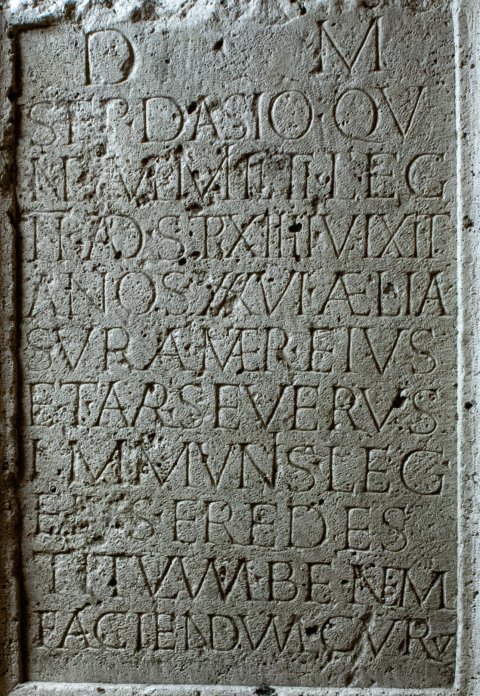 D M
SEP DASIO QV
NDAM MIL LEG
II AD STP XIIII VIXIT
ANOS XXVI AELIA
SVRA MERE IVS
ET AR SEVERVS
IMMVNS LEG
EIVS EREDES
TITVLVM BENEM
FACIENDVM CVRV